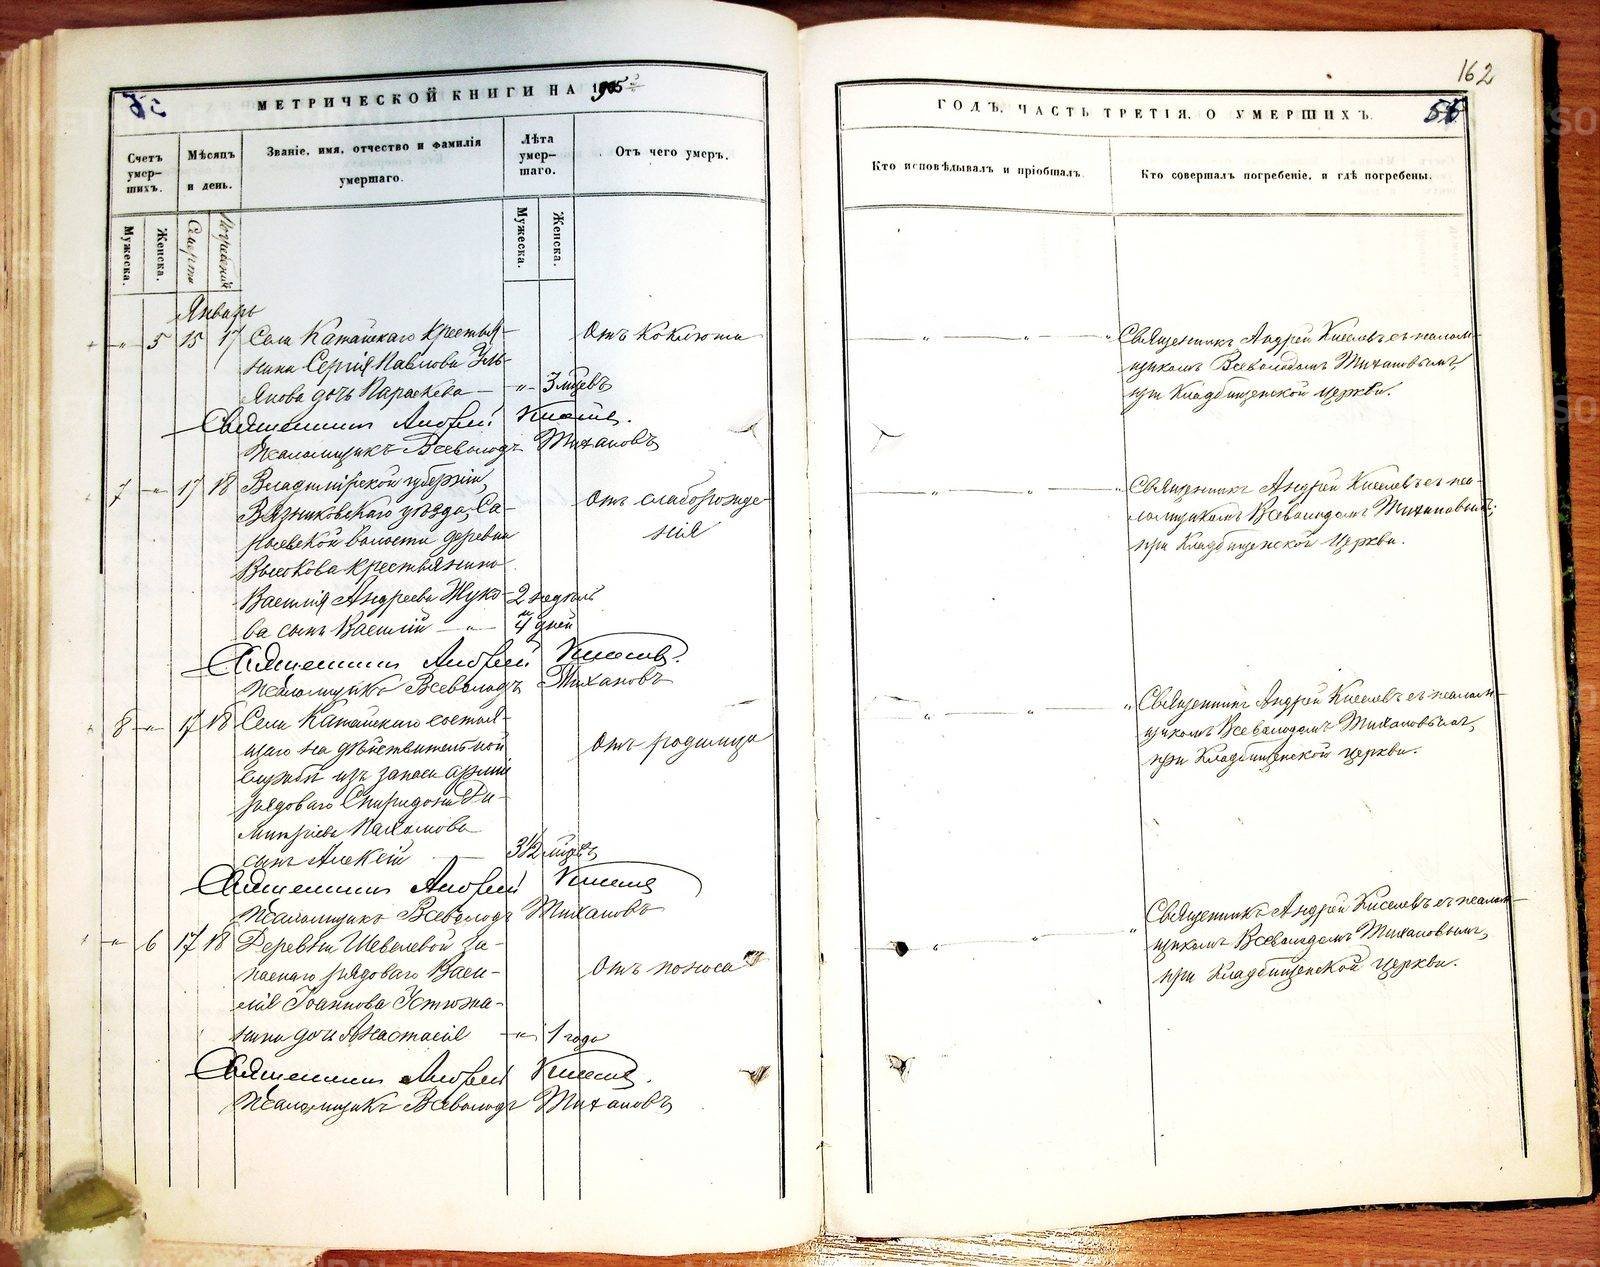 МЕТРИЧЕСКОЙ КНИГИ НА 1905
Счетъ умер-шихъ.
Мѣсяцъ и день.
Званіе, имя, отчество и фамилія умершаго.
Лѣта умер-шаго.
Отъ чего умеръ.
Мужеска.
Женска.
Смерти
Погребенія
Мужеска.
Женска.
Январь
" 5 15 17 Села Катайскаго крестья-
нина Сергія Павлова Уль-
янова дочь Параскева " 3 мѣсев
Отъ коклюша
Священникъ Андрей Киселев.
Псаломщикъ Всеволодъ Тихановъ
7 " 17 18 Владимірской губерніи,
Вязниковскаго уѣзда, Са-
рыевской волости деревни
Высокова крестьянина
Василія Андреева Жуко-
ва сынъ Василій " 2 недѣли и 4 дней
Отъ слаборожде-
нія
Священникъ Андрей Киселев.
Псаломщикъ Всеволодъ Тихановъ
8 " 17 18 Села Катайскаго состоя-
щаго на дѣйствительной
службѣ изъ запаса арміи
рядоваго Спиридона Ди-
митріева Пахомова
сынъ Алексій 3 1/2 мѣсев
Отъ родимца
Священникъ Андрей Киселев
Псаломщикъ Всеволодъ Тихановъ
" 6 17 18 Деревни Шевелевой за-
паснаго рядоваго Васи-
лія Іоаннова Устюжа-
нина дочь Анастасія " 1 года
Отъ поноса
Священникъ Андрей Киселев.
Псаломщикъ Всеволодъ Тихановъ
162
ГОДЪ, ЧАСТЬ ТРЕТІЯ, О УМЕРШИХЪ.
Кто исповѣдывалъ и пріобщалъ.
Кто совершалъ погребеніе, и гдѣ погребены.
" " " Священникъ Андрей Киселевъ съ псалом-
щикомъ Всеволодомъ Тихановымъ,
при Кладбищенской церкви.
" " " Священникъ Андрей Киселевъ съ пса-
ломщикомъ Всеволодомъ Тихановымъ,
при Кладбищенской церкви.
" " " Священникъ Андрей Киселевъ съ псалом-
щикомъ Всеволодомъ Тихановымъ,
при Кладбищенской церкви.
" " " Священникъ Андрей Киселевъ съ псалом-
щикомъ Всеволодомъ Тихановымъ,
при Кладбищенской церкви.